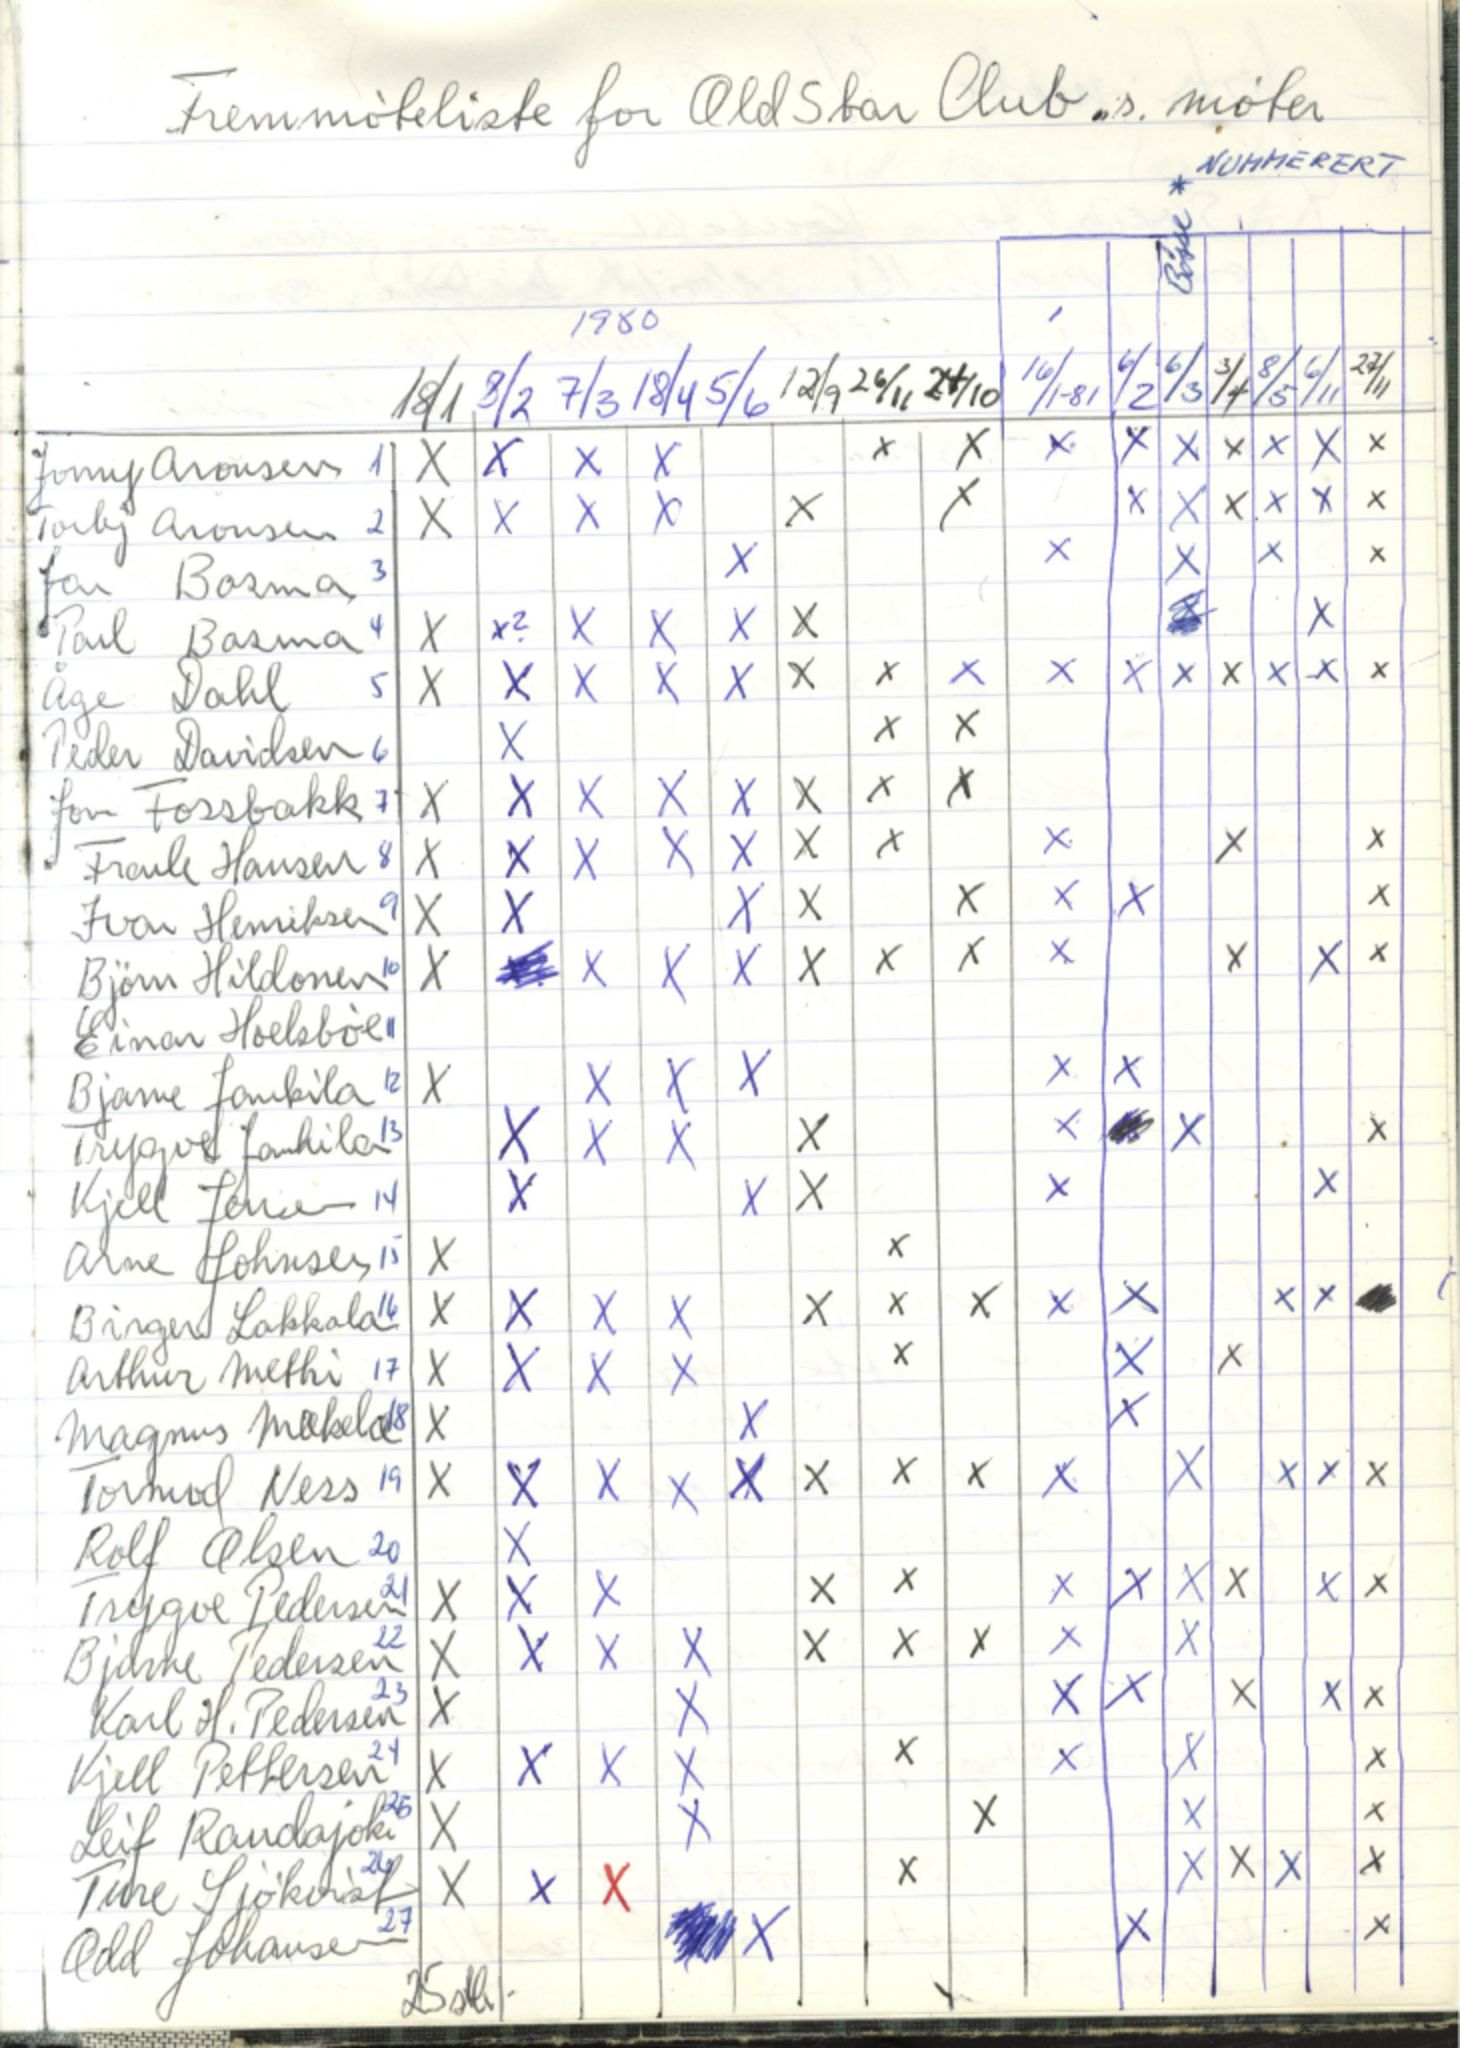 Fremmöteliste for Old Star Club "s. möter
* NUMMERERT
Bösse
1980
18/1 8/2 7/3 18/4 5/6 12/9 26/11 24/10 16/1-81 6/2 6/3 3/4 8/5 6/11 27/11
Jonny Aronsen 1 X X X X X X X X X X X X X
Torbj Aronsen 2 X X X X X X X X X X X X
Jan Bosma 3 X X X X X
Paul Bosma 4 X X? X X X X X X
Åge Dahl 5 X X X X X X X X X X X X X X X
Peder Davidsen 6 X X X
Jon Fossbakk 7 X X X X X X X X
Frank Hansen 8 X X X X X X X X X X
Ivar Henriksen 9 X X X X X X X X
Björn Hildonen 10 X X X X X X X X X X X
Einar Hoelsböe 11
Bjarne Jankila 12 X X X X X X
Trygve Jankila 13 X X X X X X X
Kjell Jensen 14 X X X X X
Arne Johnsen 15 X X
Birger Lakkala 16 X X X X X X X X X X X
Arthur Methi 17 X X X X X X X
Magnus Mækelæ 18 X X X
Tormod Ness 19 X X X X X X X X X X X X X
Rolf Olsen 20 X
Trygve Pedersen 21 X X X X X X X X X X X
Bjarne Pedersen 22 X X X X X X X X X
Karl H. Pedersen 23 X X X X X X X
Kjell Pettersen 24 X X X X X X X X
Leif Randajoki 25 X X X X X
Ture Sjökvist 26 X X X X X X X X
Odd Johansen 27 X X X
25 stk.